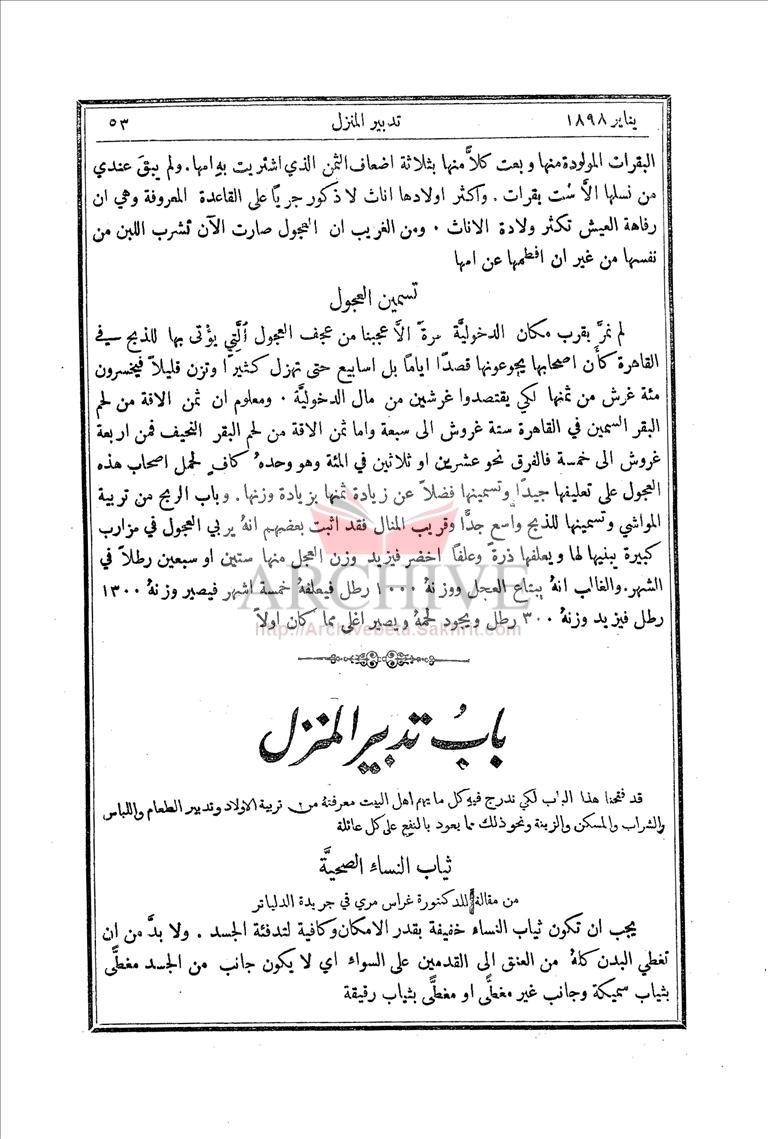 يناير ١٨٩٨ تدبير المنزل ٥٣
البقرات المولودة منها وبعت كلاًّ منها بثلاثة اضعاف الثمن الذي اشتريت به امها. ولم يبقَ عندي
من نسلها الاَّ ست بقرات. واكثر اولادها اناث لا ذكور جريًا على القاعدة المعروفة وهي ان
رفاهة العيش تكثر ولادة الاناث. ومن الغريب ان العجول صارت الآن تشرب اللبن من
نفسها من غير ان افطمها عن امها
تسمين العجول
لم نمرَّ بقرب مكان الدخوليَّة مرة الاَّ عجبنا من عجف العجول الَّتِي يؤْتى بها للذبح في
القاهرة كأَن اصحابها يجوعونها قصدًا ايامًا بل اسابيع حتى تهزل كثيرًا وتزن قليلاً فيخسرون
مئة غرش من ثمنها لكي يقتصدوا غرشين من مال الدخوليَّة. ومعلوم ان ثمن الاقة من لحم
البقر السمين في القاهرة ستة غروش الى سبعة واما ثمن الاقة من لحم البقر النحيف فمن اربعة
غروش الى خمسة فالفرق نحو عشرين او ثلاثين في المئة وهو وحدهُ كافٍ لحمل اصحاب هذه
العجول على تعليفها جيدًا وتسمينها فضلاً عن زيادة ثمنها بزيادة وزنها. وباب الربح من تربية
المواشي وتسمينها للذبح واسع جدًّا وقريب المنال فقد اثبت بعضهم انهُ يربي العجول في مزارب
كبيرة يبنيها لها ويعلفها ذرةً وعلفًا اخضر فيزيد وزن العجل منها ستين او سبعين رطلاً في
الشهر. والغالب انهُ يبتاع العجل ووزنهُ ١٠٠٠ رطل فيعلفهُ خمسة اشهر فيصير وزنهُ ١٣٠٠
رطل فيزيد وزنهُ ٣٠٠ رطل ويجود لحمهُ ويصير اغلى مما كان اولاً
ARCHIVE
http://Archivebeta.Sakhrit.com
بابُ تدبير المنزل
قد فتحنا هذا الباب لكي ندرج فيهِ كل ما يهم اهل البيت معرفتهُ من تربية الاولاد وتدبير الطعام واللباس
والشراب والمسكن والزينة ونحو ذلك مما يعود بالنفع على كل عائلة
ثياب النساء الصحيَّة
من مقالة للدكتورة غراس مري في جريدة الدلياتر
يجب ان تكون ثياب النساء خفيفة بقدر الامكان وكافية لتدفئة الجسد. ولا بدَّ من ان
تغطي البدن كلهُ من العنق الى القدمين على السواء اي لا يكون جانب من الجسد مغطًّى
بثياب سميكة وجانب غير مغطًّى او مغطًّى بثياب رقيقة